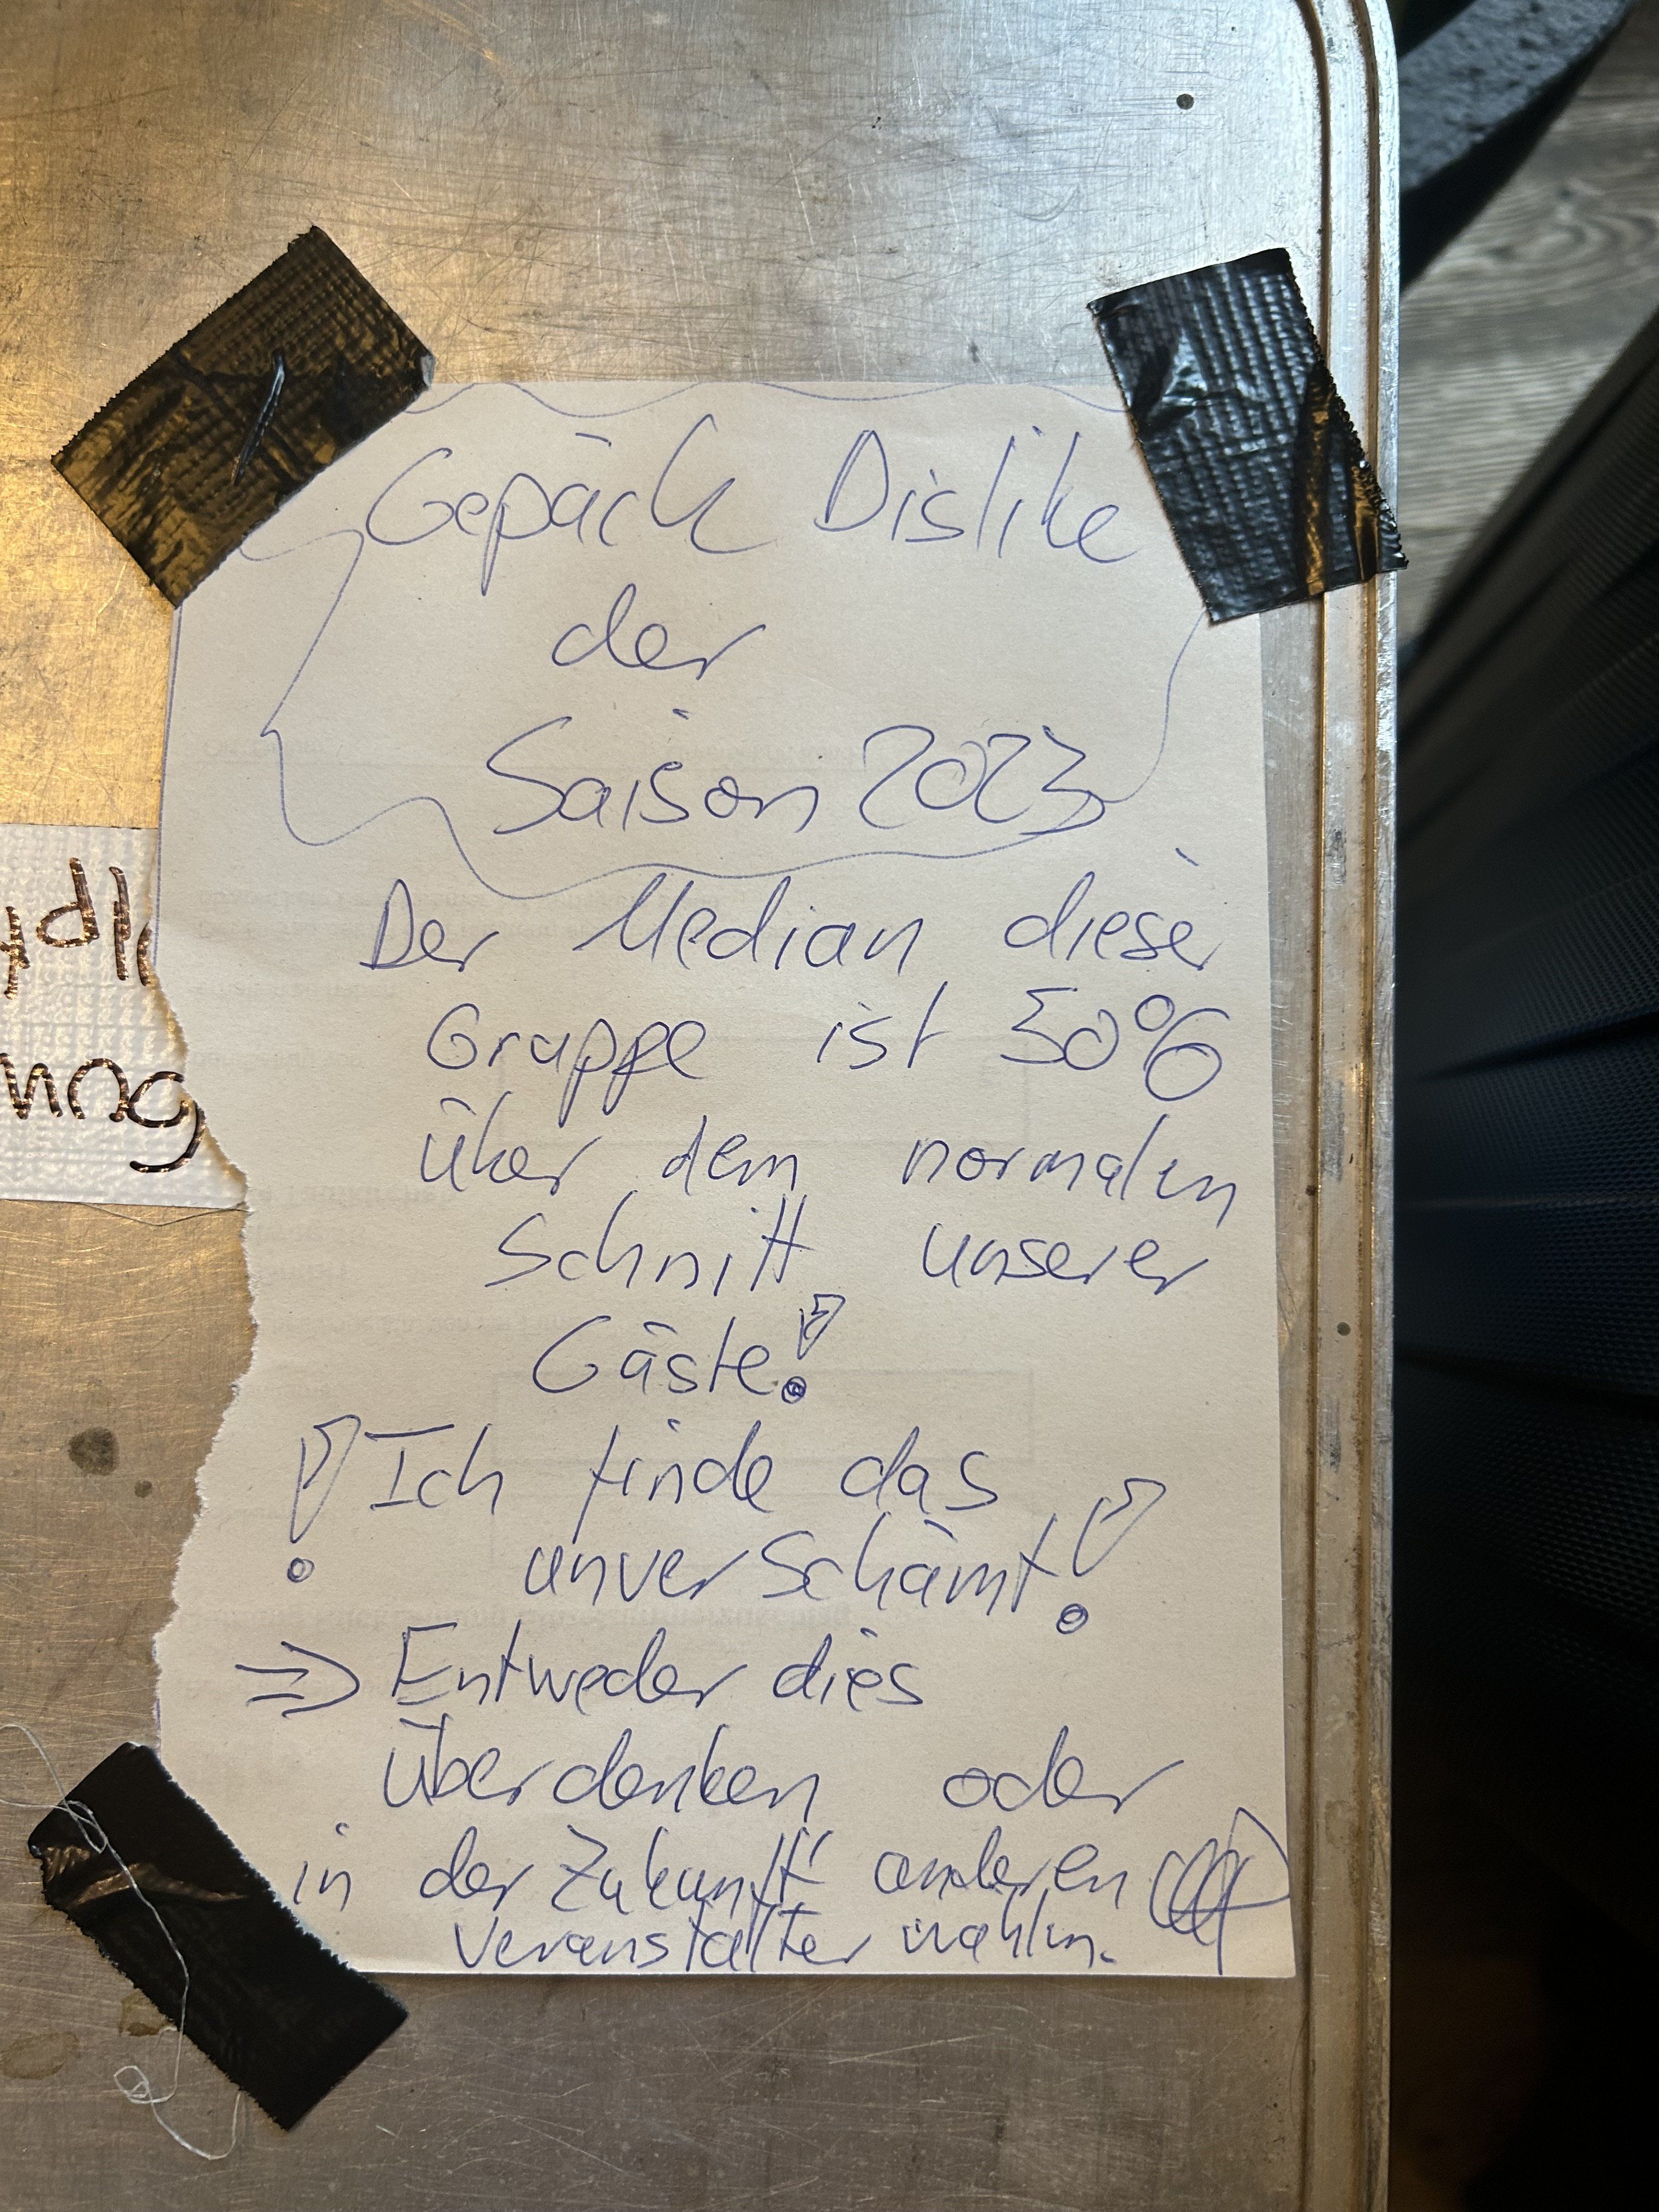 Gepäck Dislike
der
Saison 2023
Der Median dieser
Gruppe ist 50%
über dem normalen
Schnitt unserer
Gäste!
! Ich finde das
unverschämt!
=> Entweder dies
überdenken oder
in der Zukunft anderen
Veranstalter wählen.